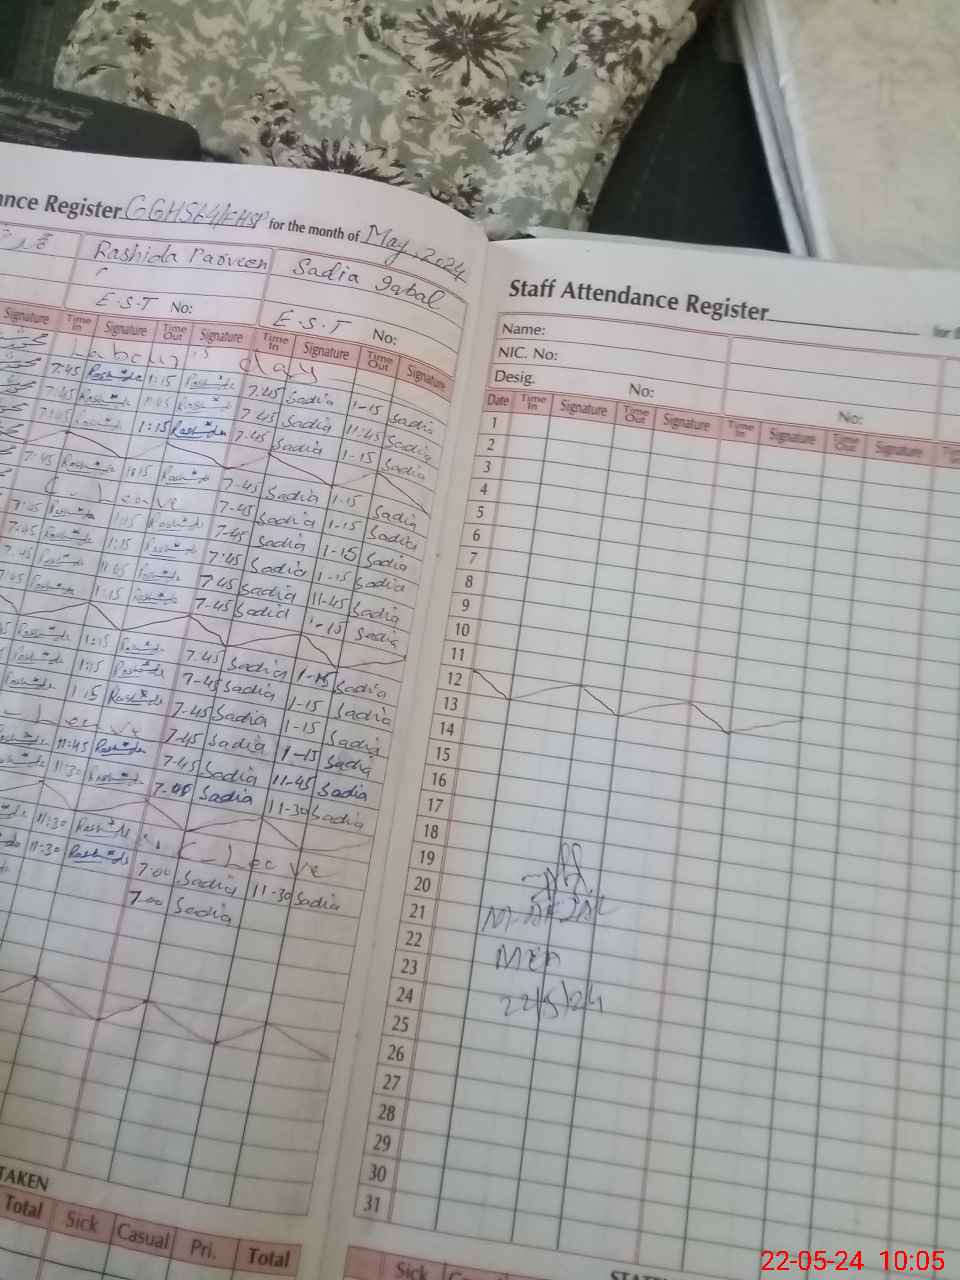 nce Register GGHS 64/EHSP for the month of May, 2024
Rashida Parveen Sadia Iqbal
E.S.T No: E.S.T No:
Signature Time In Signature Time Out Signature Time In Signature Time Out Signature
Labour's day
7:45 Rashida 1:15 Rashida 7-45 Sadia 1-15 Sadia
7:45 Rashida 11:45 Rashida 7-45 Sadia 11-45 Sadia
7:45 Rashida 1:15 Rashida 7-45 Sadia 1-15 Sadia
7:45 Rashida 1:15 Rashida 7-45 Sadia 1-15 Sadia
C-Leave 7-45 Sadia 1-15 Sadia
7:45 Rashida 1:15 Rashida 7-45 Sadia 1-15 Sadia
7:45 Rashida 1:15 Rashida 7-45 Sadia 1-15 Sadia
7:45 Rashida 11:45 Rashida 7-45 Sadia 11-45 Sadia
7:45 Rashida 1:15 Rashida 7-45 Sadia 1-15 Sadia
Rashida 1:15 Rashida 7-45 Sadia 1-15 Sadia
Rashida 1:15 Rashida 7-45 Sadia 1-15 Sadia
Rashida 1:15 Rashida 7-45 Sadia 1-15 Sadia
Leave 7-45 Sadia 1-15 Sadia
Rashida 11:45 Rashida 7-45 Sadia 11-45 Sadia
11:30 Rashida 7-00 Sadia 11-30 Sadia
11:30 Rashida C-Leave
11:30 Rashida 7-00 Sadia 11-30 Sadia
7-00 Sadia
TAKEN
Total Sick Casual Pri. Total
Staff Attendance Register
Name:
NIC. No:
Desig. No: No:
Date Time In Signature Time Out Signature Time In Signature Time Out Signature
1
2
3
4
5
6
7
8
9
10
11
12
13
14
15
16
17
18
19
20
21
22
23
24
25
26
27
28
29
30
31
MEA
22/5/24
Sick
22-05-24 10:05